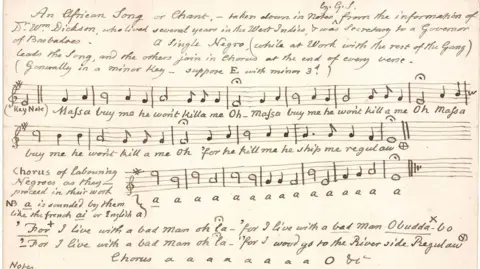 by G.S.
An African Song or Chant, – taken down in Notes, from the information of
Dr. Wm Dickson, who lived several years in the West Indies, & was Secretary to a Governor
of Barbadoes. A Single Negro (while at Work with the rest of the Gang)
leads the Song, and the others join in Chorus at the end of every verse.
(Generally in a minor Key – suppose E with minor 3d.)
(Key Note) Massa buy me he won't killa me Oh – Massa buy me he won't kill a me Oh Massa
buy me he won't kill a me Oh 'for he kill me he ship me regulaw
Chorus of Labouring
Negroes as they
proceed in their work
a a a a a a a a
NB a is sounded by them
like the french ai or English a)
"For I live with a bad man oh la – 'for I live with a bad man Obudda-bo
"For I live with a bad man oh la – 'for I wou'd go to the River side Regulaw
Chorus a a a a a a a O &c
Notes